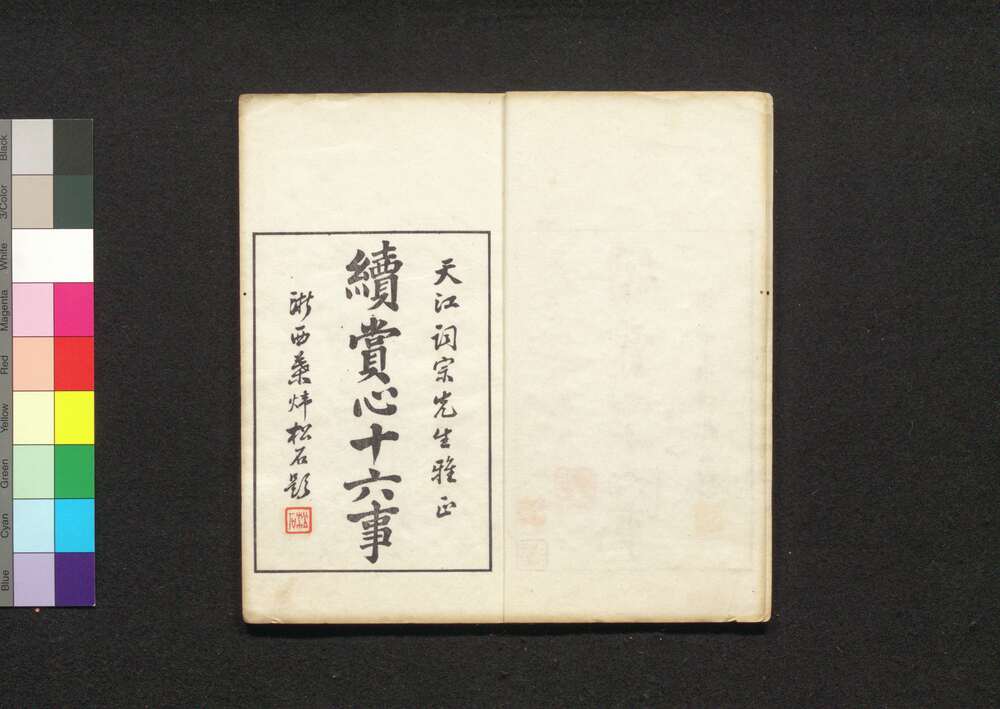 天江词宗先生雅正
續賞心十六事
浙西葉煒松石題
松石
Black
3/Color
White
Magenta
Red
Yellow
Green
Cyan
Blue